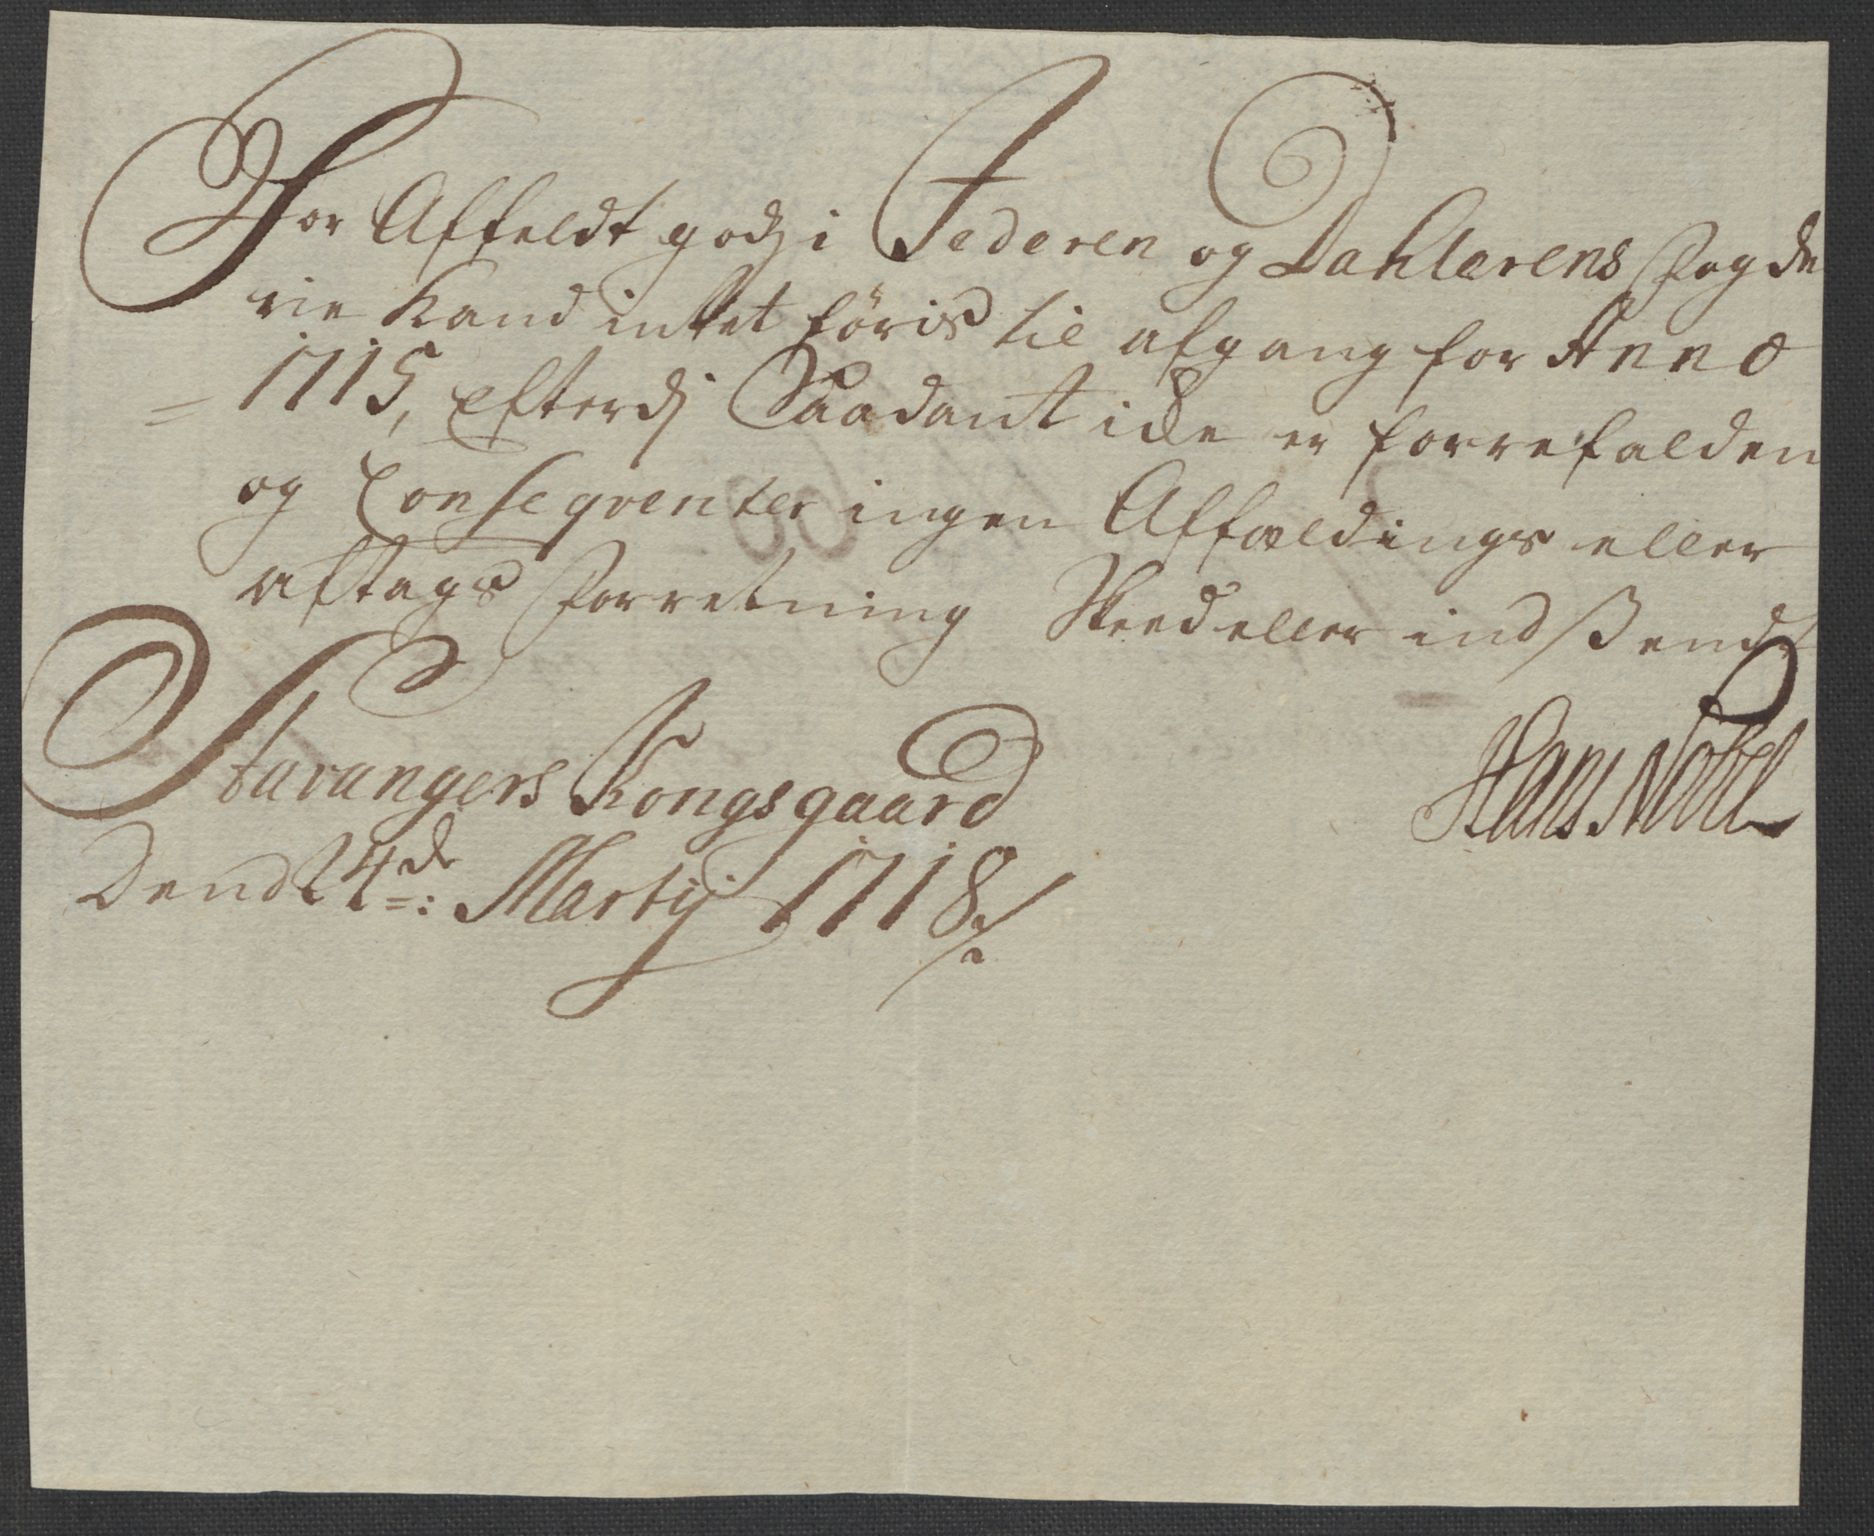 For Affeldt godz i Jederen og Dahlerens fogde
rie kand intet føris til afgang for Anno
= 1715, Efterdj Saadant icke er forrefalden
og Conseqventer ingen Affældings eller
aftags forretning Skeed eller indsßendt
Stavangers Kongsgaard
Dend 24de: Martij 1718 ./.
Hans Nobel